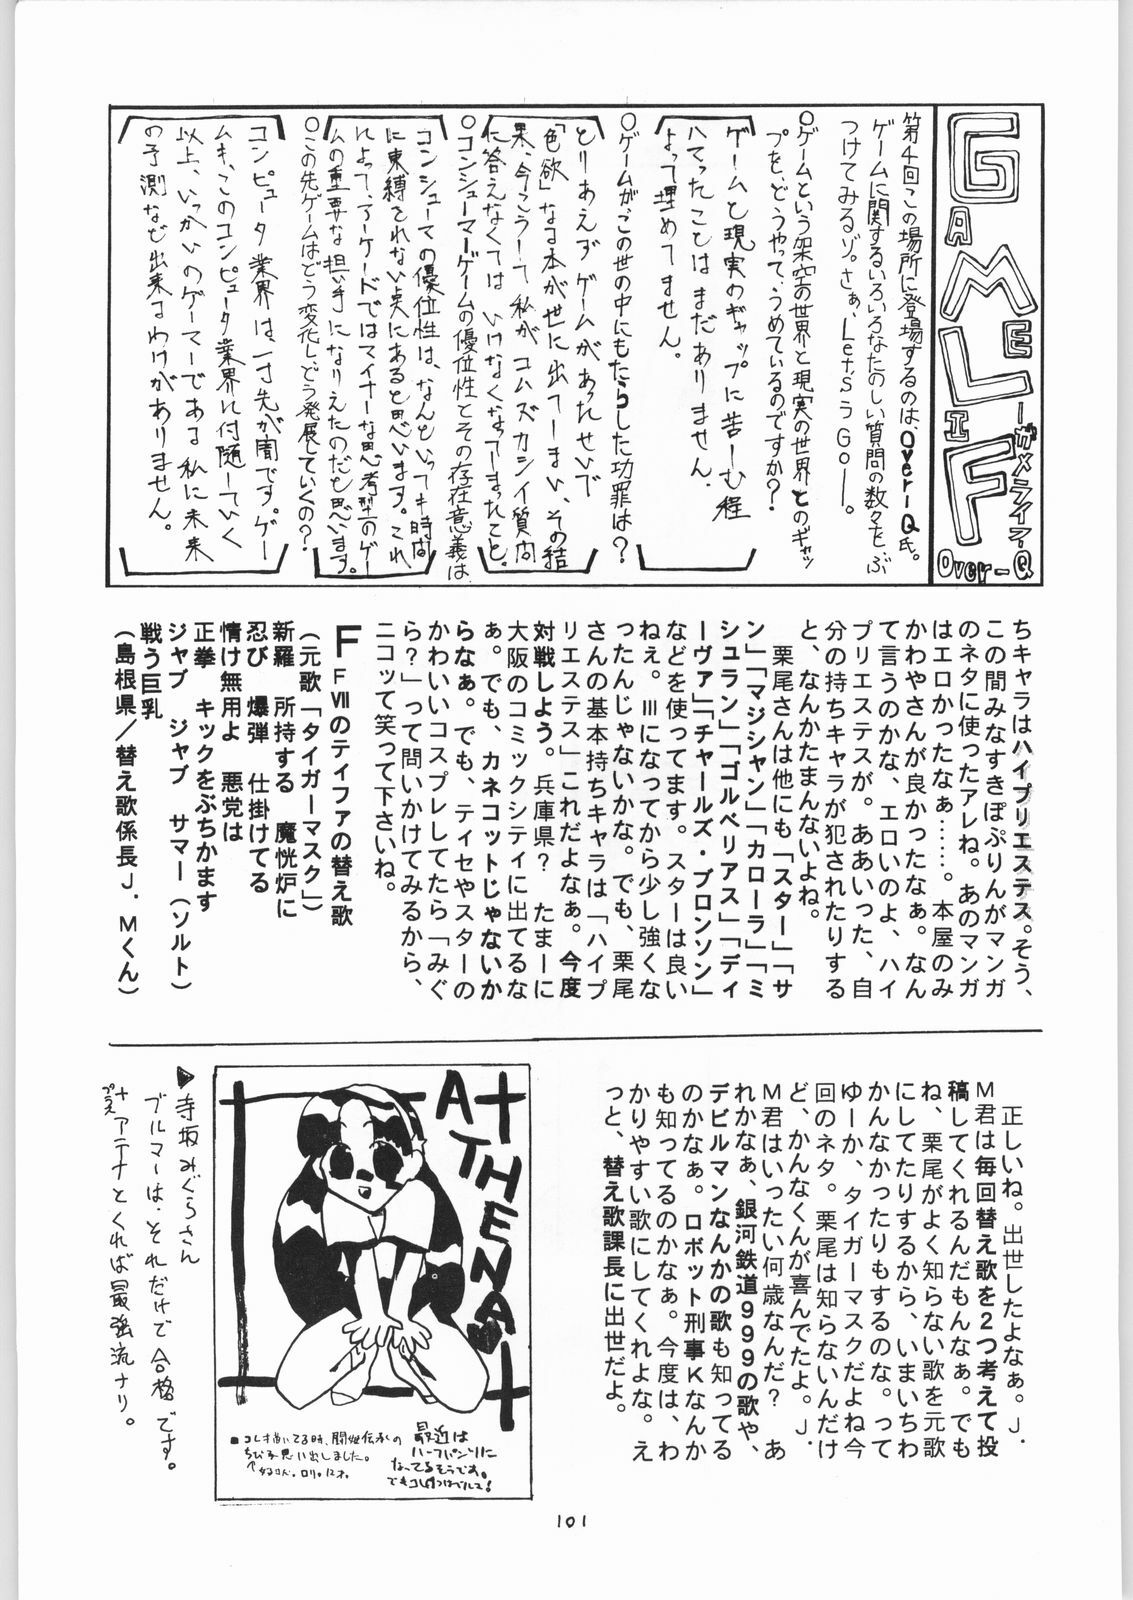 GAME LIFE
ーガメライフー
Over-Q
第4回この場所に登場するのは、Over-Q氏。
ゲームに関するいろいろなたのしい質問の数々をぶ
つけてみるゾ。さぁ、Let'sう Go—。
○ゲームという架空の世界と現実の世界とのギャッ
プを、どうやって、うめているのですか?
ゲームと現実のギャップに苦しむ程
ハマったことはまだありません。
よって埋めてません。
○ゲームが、この世の中にもたらした功罪は?
とりあえずゲームがあったせいで
「色欲」なる本が世に出てしまい、その結
果、今こうして私がコムズカシイ質問
に答えなくてはいけなくなってしまったこと。
○コンシューマーゲームの優位性とその存在意義は
コンシューマの優位性は、なんといっても時間
に束縛されない点にあると思います。これ
によって、アーケードではマイナーな思考型のゲー
ムの重要な担い手になりえたのだと思います。
○この先ゲームはどう変化し、どう発展していくの?
コンピュータ業界は、一寸先が闇です。ゲー
ムも、このコンピュータ業界に付随していく
以上、いっかいのゲーマーである私に未来
の予測など出来るわけがありません。
ちキャラはハイプリエステス。そう、
この間みなすきぽぷりんがマンガ
のネタに使ったアレね。あのマンガ
はエロかったなぁ……。本屋のみ
かわやさんが良かったなぁ。なん
て言うのかな、エロいのよ、ハイ
プリエステスが。ああいった、自
分の持ちキャラが犯されたりする
と、なんかたまんないよね。
栗尾さんは他にも「スター」「サ
ン」「マジシャン」「カローラ」「ミ
シュラン」「ゴルベリアス」「ディ
ーヴァ」「チャールズ・ブロンソン」
などを使ってます。スターは良い
ねぇ。Ⅲになってから少し強くな
ったんじゃないかな。でも、栗尾
さんの基本持ちキャラは「ハイプ
リエステス」これだよなぁ。今度
対戦しよう。兵庫県? たまーに
大阪のコミックシティに出てるな
ぁ。でも、カネコットじゃないか
らなぁ。でも、ティセやスターの
かわいいコスプレしてたら「みぐ
ら?」って問いかけてみるから、
ニコッて笑って下さいね。
FFⅦのティファの替え歌
(元歌「タイガーマスク」)
新羅 所持する 魔恍炉に
忍び 爆弾 仕掛けてる
情け無用よ 悪党は
正拳 キックをぶちかます
ジャブ ジャブ サマー(ソルト)
戦う巨乳
(島根県/替え歌係長J.Mくん)
正しいね。出世したよなぁ。J.
M君は毎回替え歌を2つ考えて投
稿してくれるんだもんなぁ。でも
ね、栗尾がよく知らない歌を元歌
にしてたりするから、いまいちわ
かんなかったりもするのな。って
ゆーか、タイガーマスクだよね今
回のネタ。栗尾は知らないんだけ
ど、かんなくんが喜んでたよ。J.
M君はいったい何歳なんだ? あ
れかなぁ、銀河鉄道999の歌や、
デビルマンなんかの歌も知ってる
のかなぁ。ロボット刑事Kなんか
も知ってるのかなぁ。今度は、わ
かりやすい歌にしてくれよな。え
っと、替え歌課長に出世だよ。
ATHENA
■コレを描いてる時、闘姫伝承の
ちび子思い出しました。
最近は
ハーフパンツに
なってるそうです。
でもコレはブルマ!
▶寺坂みぐらさん
ブルマーは、それだけで合格です。
プラス
+アテナとくれば最強流ナリ。
101